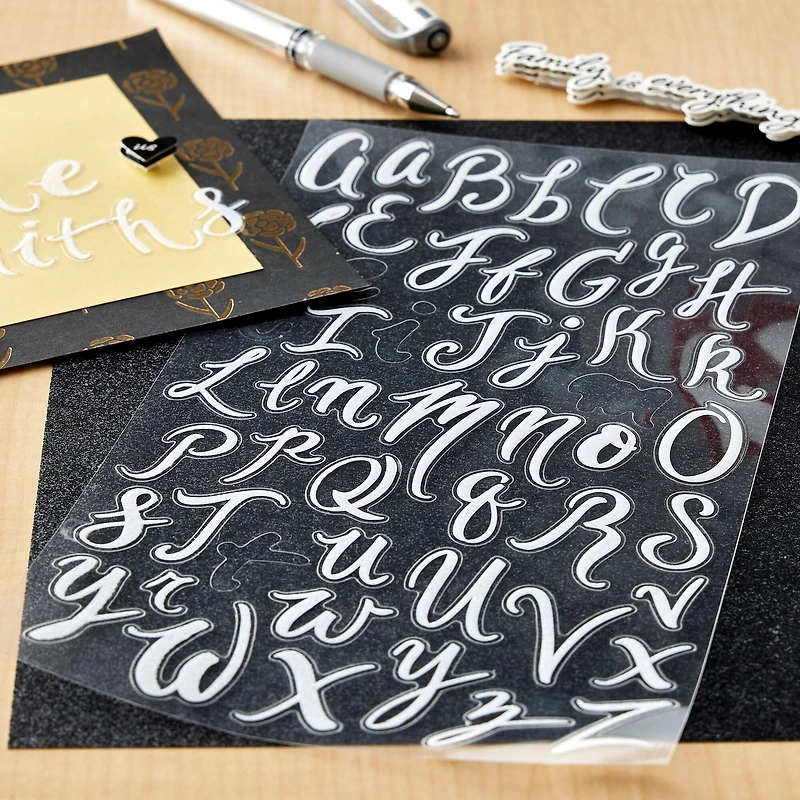 Family is everything
us
e
iths
A a B b C c D
E
F f G g H
I J j K k
L l n M n o O
P p Q q R S
s T u U V v
Y r w x
W X y z Z